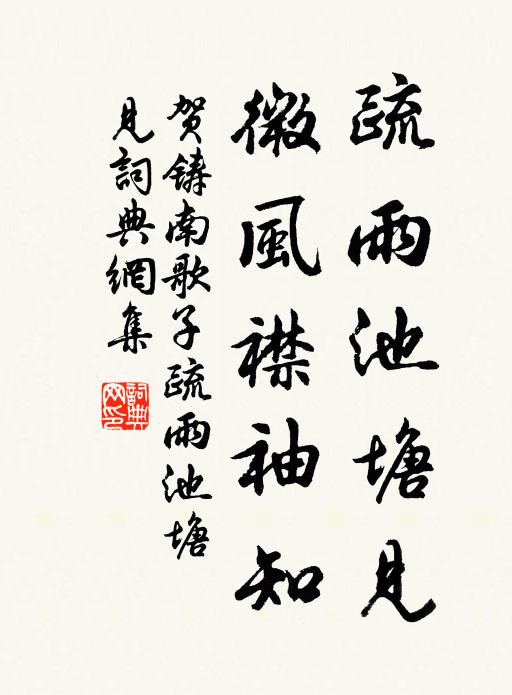 疏雨池塘見
微風襟袖知
賀鑄南歌子疏雨池塘
見詞典網集
詞典
網印